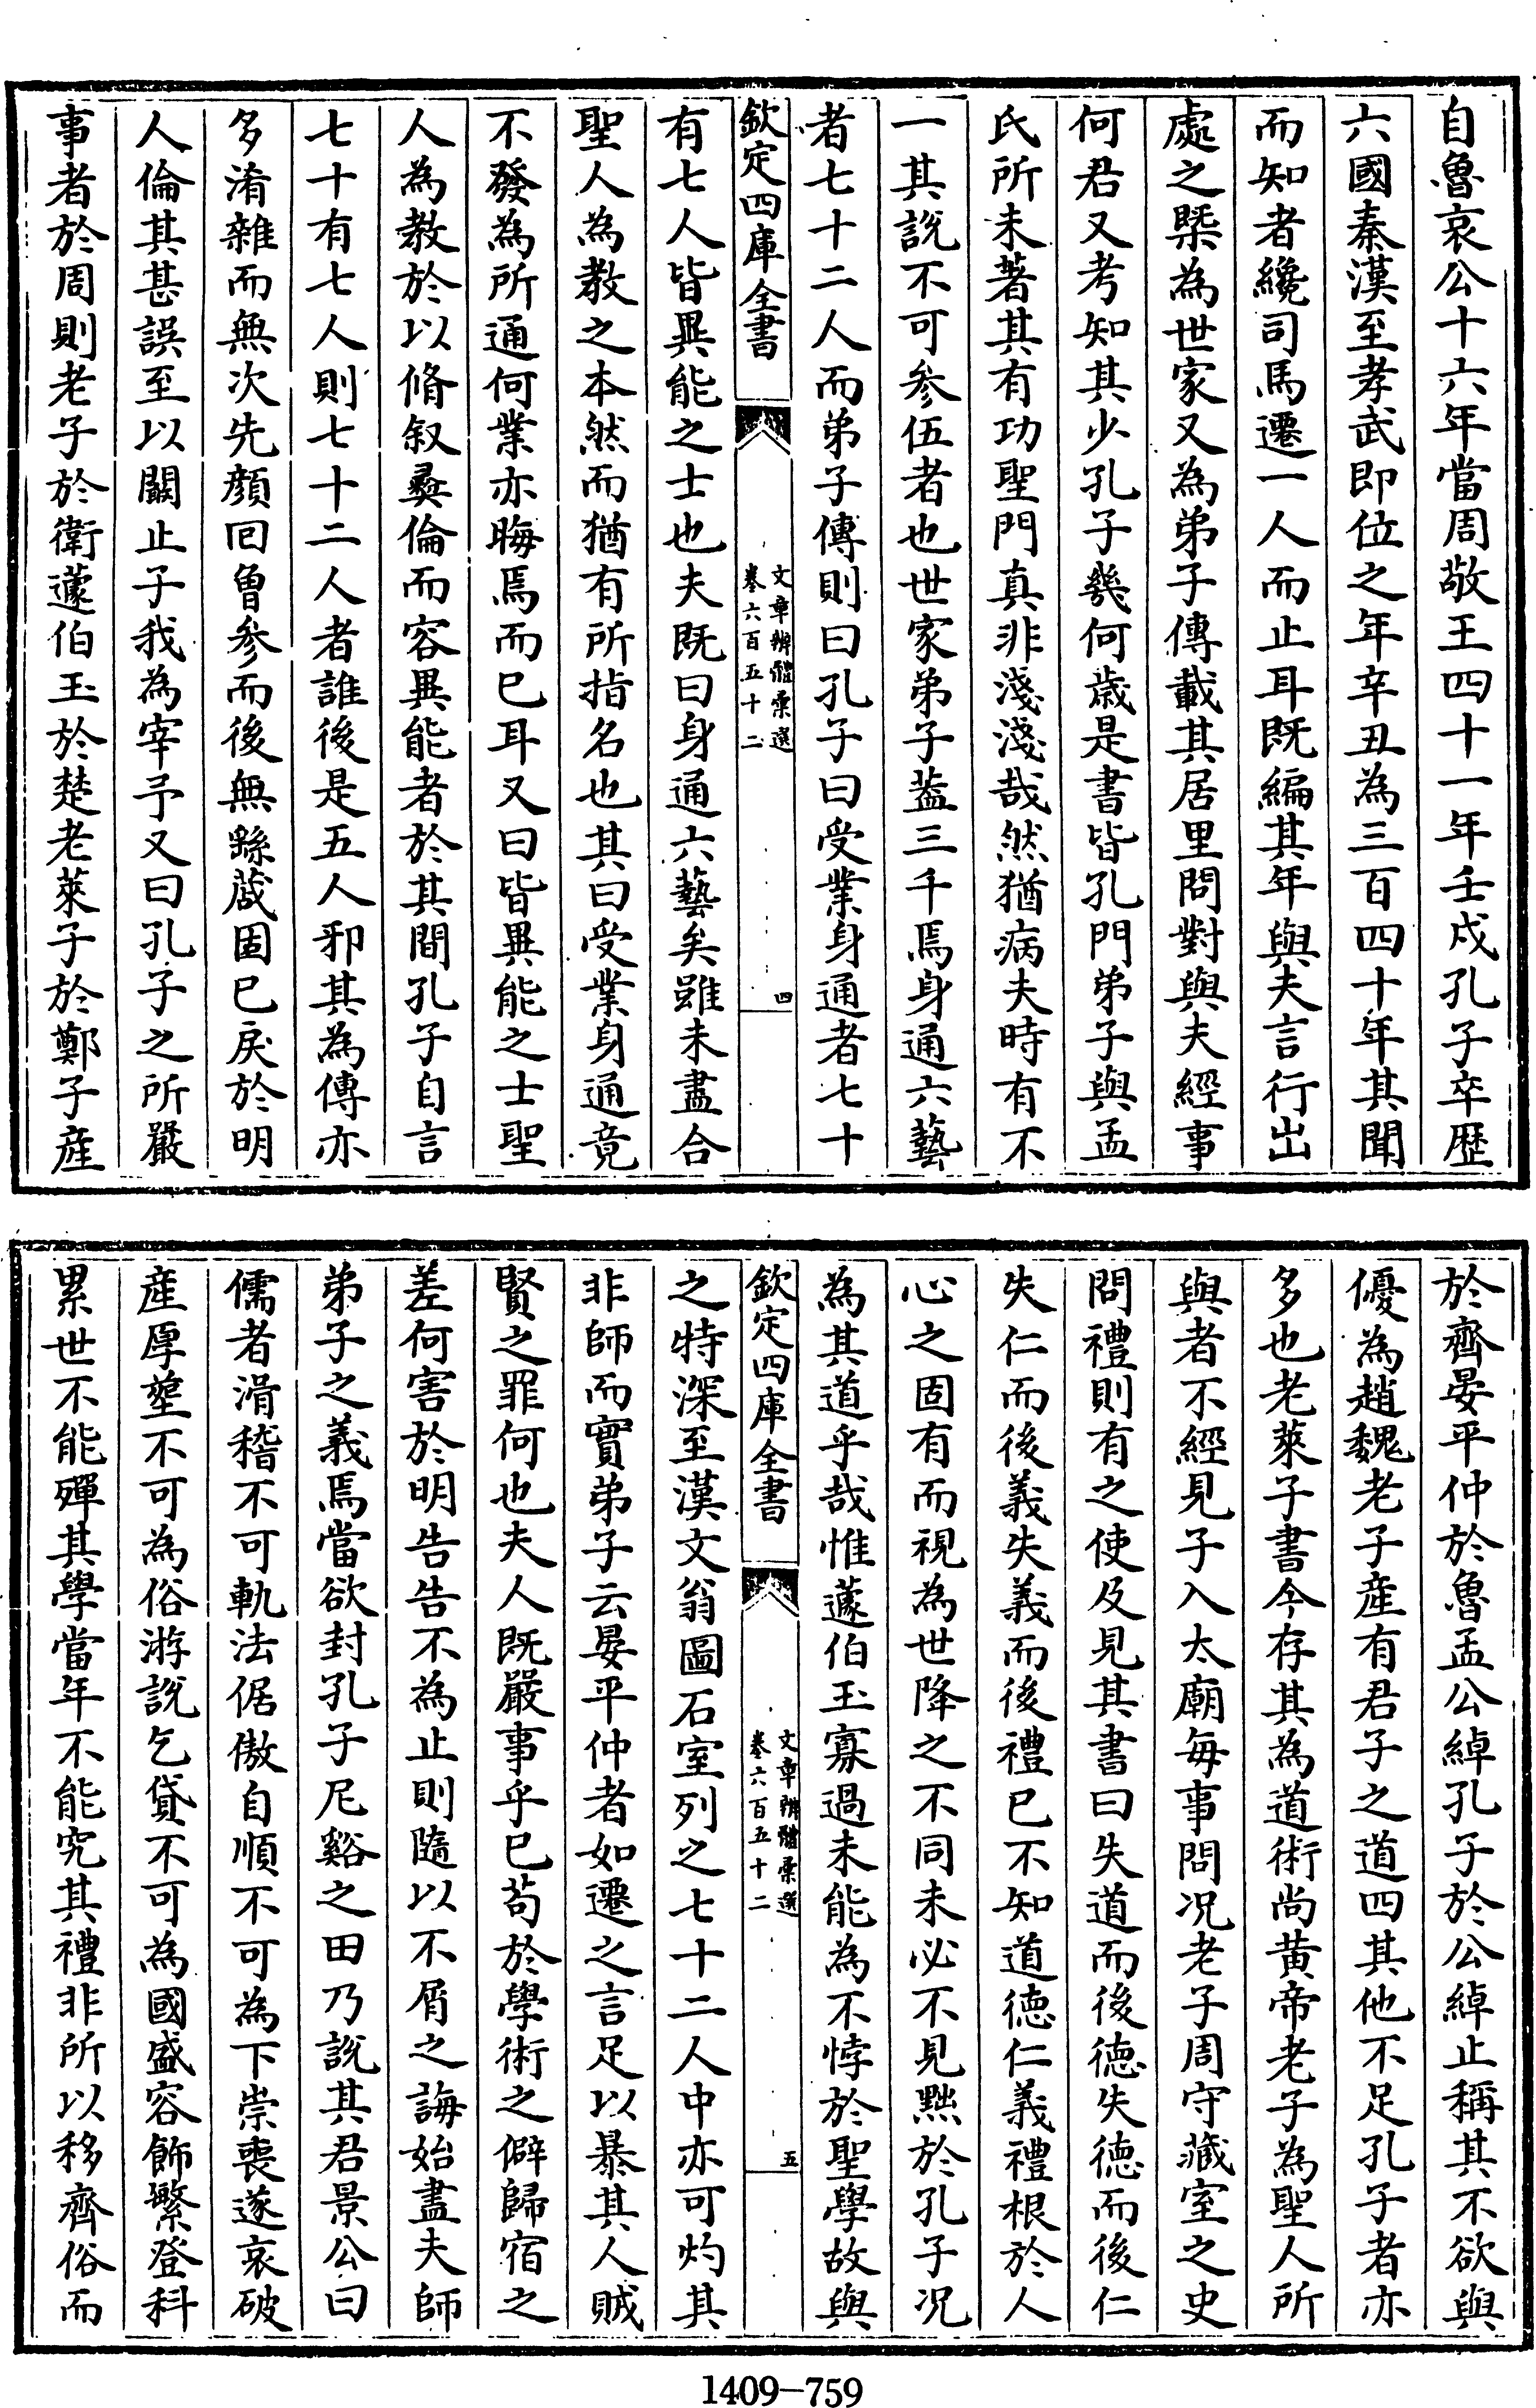 自魯哀公十六年當周敬王四十一年壬戌孔子卒歴
六國秦漢至孝武即位之年辛丑為三百四十年其聞
而知者纔司馬遷一人而止耳既編其年與夫言行出
處之槩為世家又為弟子傳載其居里問對與夫經事
何君又考知其少孔子幾何歲是書皆孔門弟子與孟
氏所未著其有功聖門真非淺淺哉然猶病夫時有不
一其說不可參伍者也世家弟子葢三千焉身通六藝
者七十二人而弟子傳則曰孔子曰受業身通者七十
欽定四庫全書
文章辨體彚選
卷六百五十二
四
有七人皆異能之士也夫既曰身通六藝矣雖未盡合
聖人為教之本然而猶有所指名也其曰受業身通竟
不發為所通何業亦晦焉而已耳又曰皆異能之士聖
人為教於以脩叙彞倫而容異能者於其間孔子自言
七十有七人則七十二人者誰後是五人邪其為傳亦
多淆雜而無次先顔回曾參而後無繇蒧固已戾於明
人倫其甚誤至以闞止子我為宰予又曰孔子之所嚴
事者於周則老子於衛蘧伯玉於楚老萊子於鄭子産
於齊晏平仲於魯孟公綽孔子於公綽止稱其不欲與
優為趙魏老子産有君子之道四其他不足孔子者亦
多也老萊子書今存其為道術尚黄帝老子為聖人所
與者不經見子入太廟每事問况老子周守藏室之史
問禮則有之使及見其書曰失道而後徳失徳而後仁
失仁而後義失義而後禮已不知道徳仁義禮根於人
心之固有而視為世降之不同未必不見黜於孔子况
為其道乎哉惟蘧伯玉寡過未能為不悖於聖學故與
欽定四庫全書
文章辨體彚選
卷六百五十二
五
之特深至漢文翁圖石室列之七十二人中亦可灼其
非師而實弟子云晏平仲者如遷之言足以暴其人賊
賢之罪何也夫人既嚴事乎已苟於學術之僻歸宿之
差何害於明告告不為止則隨以不屑之誨始盡夫師
弟子之義焉當欲封孔子尼谿之田乃說其君景公曰
儒者滑稽不可軌法倨傲自順不可為下崇喪遂哀破
産厚塟不可為俗游說乞貸不可為國盛容飾繁登科
累世不能殫其學當年不能究其禮非所以移齊俗而
1409—759